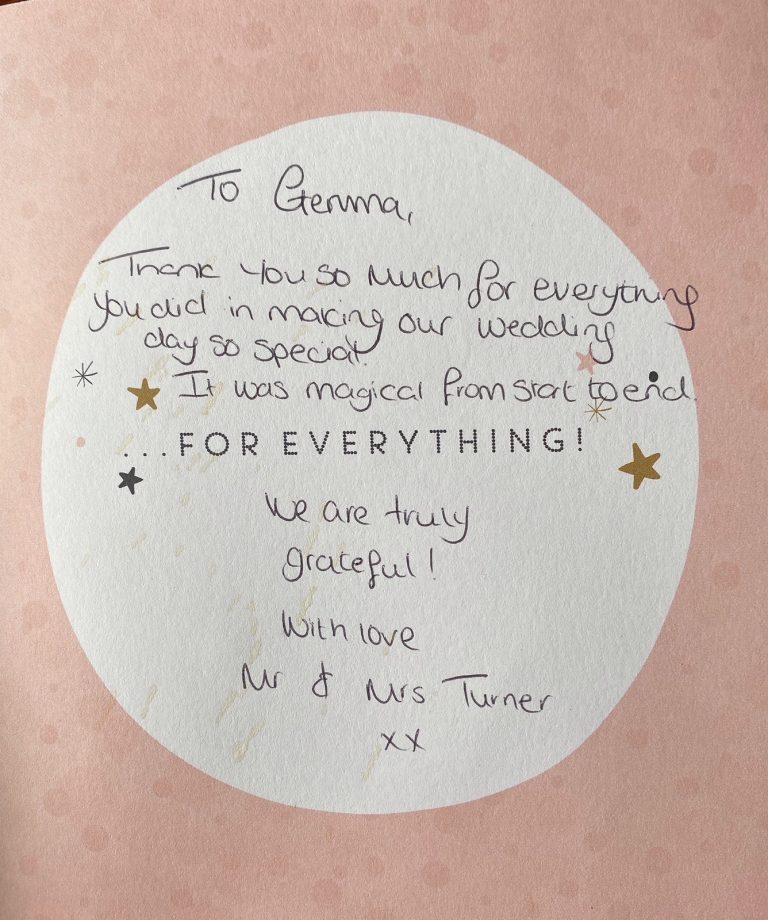 To Gemma,
Thank You so Much for everything
you did in making our wedding
day so special.
It was magical from start to end.
...FOR EVERYTHING!
We are truly
grateful!
With love
Mr & Mrs Turner
xx